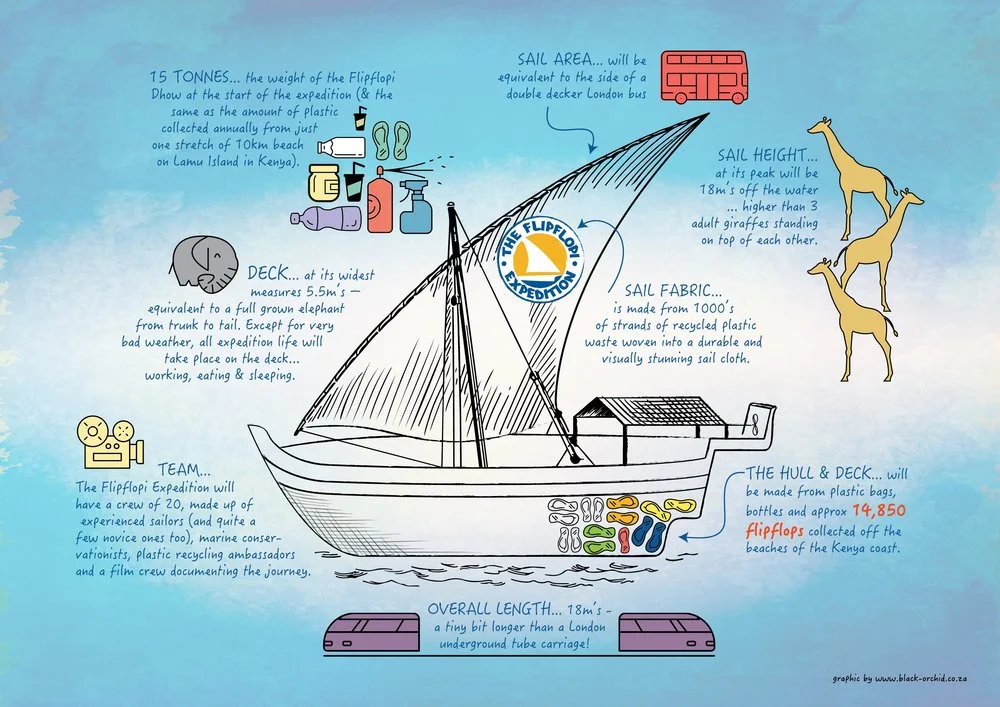 15 TONNES... the weight of the Flipflopi
Dhow at the start of the expedition (& the
same as the amount of plastic
collected annually from just
one stretch of 10km beach
on Lamu Island in Kenya).
SAIL AREA... will be
equivalent to the side of a
double decker London bus
SAIL HEIGHT...
at its peak will be
18m's off the water
... higher than 3
adult giraffes standing
on top of each other.
THE FLIPFLOPI
EXPEDITION
DECK... at its widest
measures 5.5m's –
equivalent to a full grown elephant
from trunk to tail. Except for very
bad weather, all expedition life will
take place on the deck...
working, eating & sleeping.
SAIL FABRIC...
is made from 1000's
of strands of recycled plastic
waste woven into a durable and
visually stunning sail cloth.
TEAM...
The Flipflopi Expedition will
have a crew of 20, made up of
experienced sailors (and quite a
few novice ones too), marine conser-
vationists, plastic recycling ambassadors
and a film crew documenting the journey.
THE HULL & DECK... will
be made from plastic bags,
bottles and approx 14,850
flipflops collected off the
beaches of the Kenya coast.
OVERALL LENGTH... 18m's -
a tiny bit longer than a London
underground tube carriage!
graphic by www.black-orchid.co.za